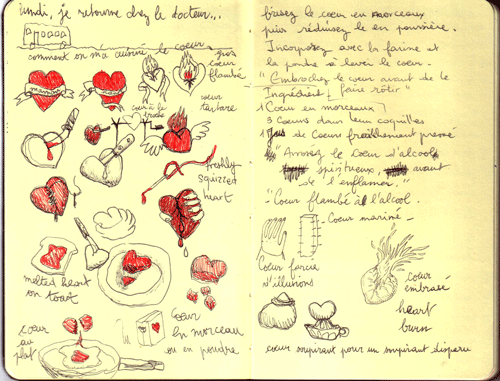 lundi, je retourne chez le docteur...
comment on m'a cuisiné le coeur
gros
coeur
flambé
coeur à la
broche
coeur
tartare
freshly
squizzed
heart
melted heart
on toast
coeur
au
plat
Coeur
en morceau
ou en poudre
brisez le coeur en morceaux
puis réduisez le en poussière.
Incorporez avec la farine et
la poudre à lever le coeur.
"Embrochez le coeur avant de le
faire rôtir"
Ingrédient
1 Coeur en morceaux
3 coeurs dans leur coquilles
1 Jus de Coeur fraîchement pressé
"Arrosez le coeur d'alcool
spiritueux, avant
de l'enflamer."
"Coeur flambé à l'alcool.
Coeur mariné -
Coeur farci
d'illusions
coeur
embrasé
heart
burn
coeur soupirant pour un soupirant disparu